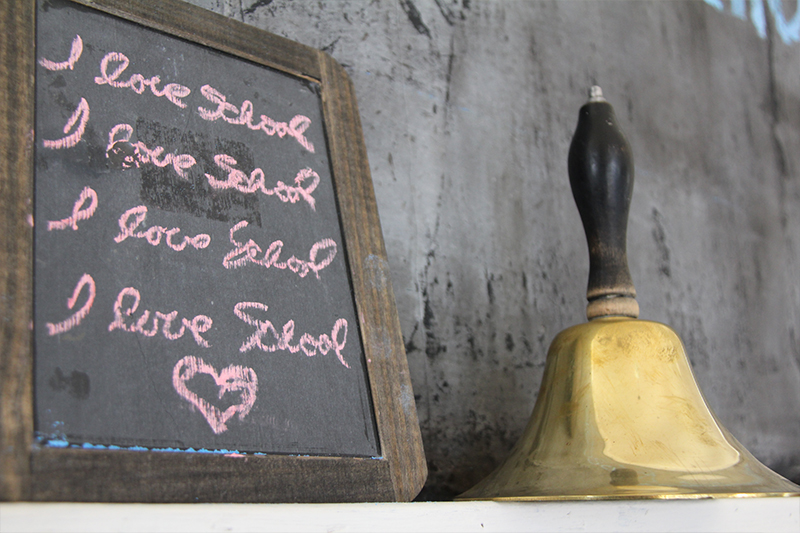 I love School
I love School
I love School
I love School